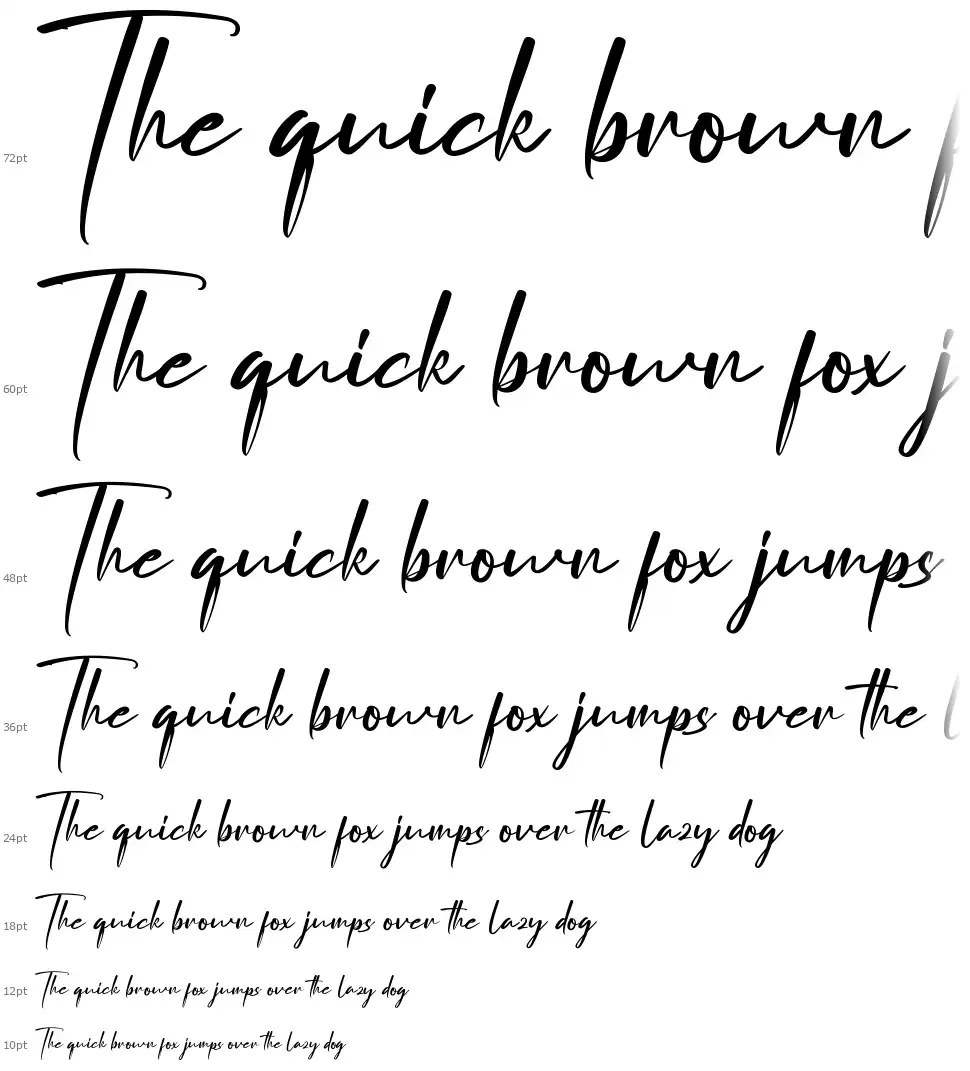 72pt The quick brown
60pt The quick brown fox j
48pt The quick brown fox jumps
36pt The quick brown fox jumps over the
24pt The quick brown fox jumps over the lazy dog
18pt The quick brown fox jumps over the lazy dog
12pt The quick brown fox jumps over the lazy dog
10pt The quick brown fox jumps over the lazy dog